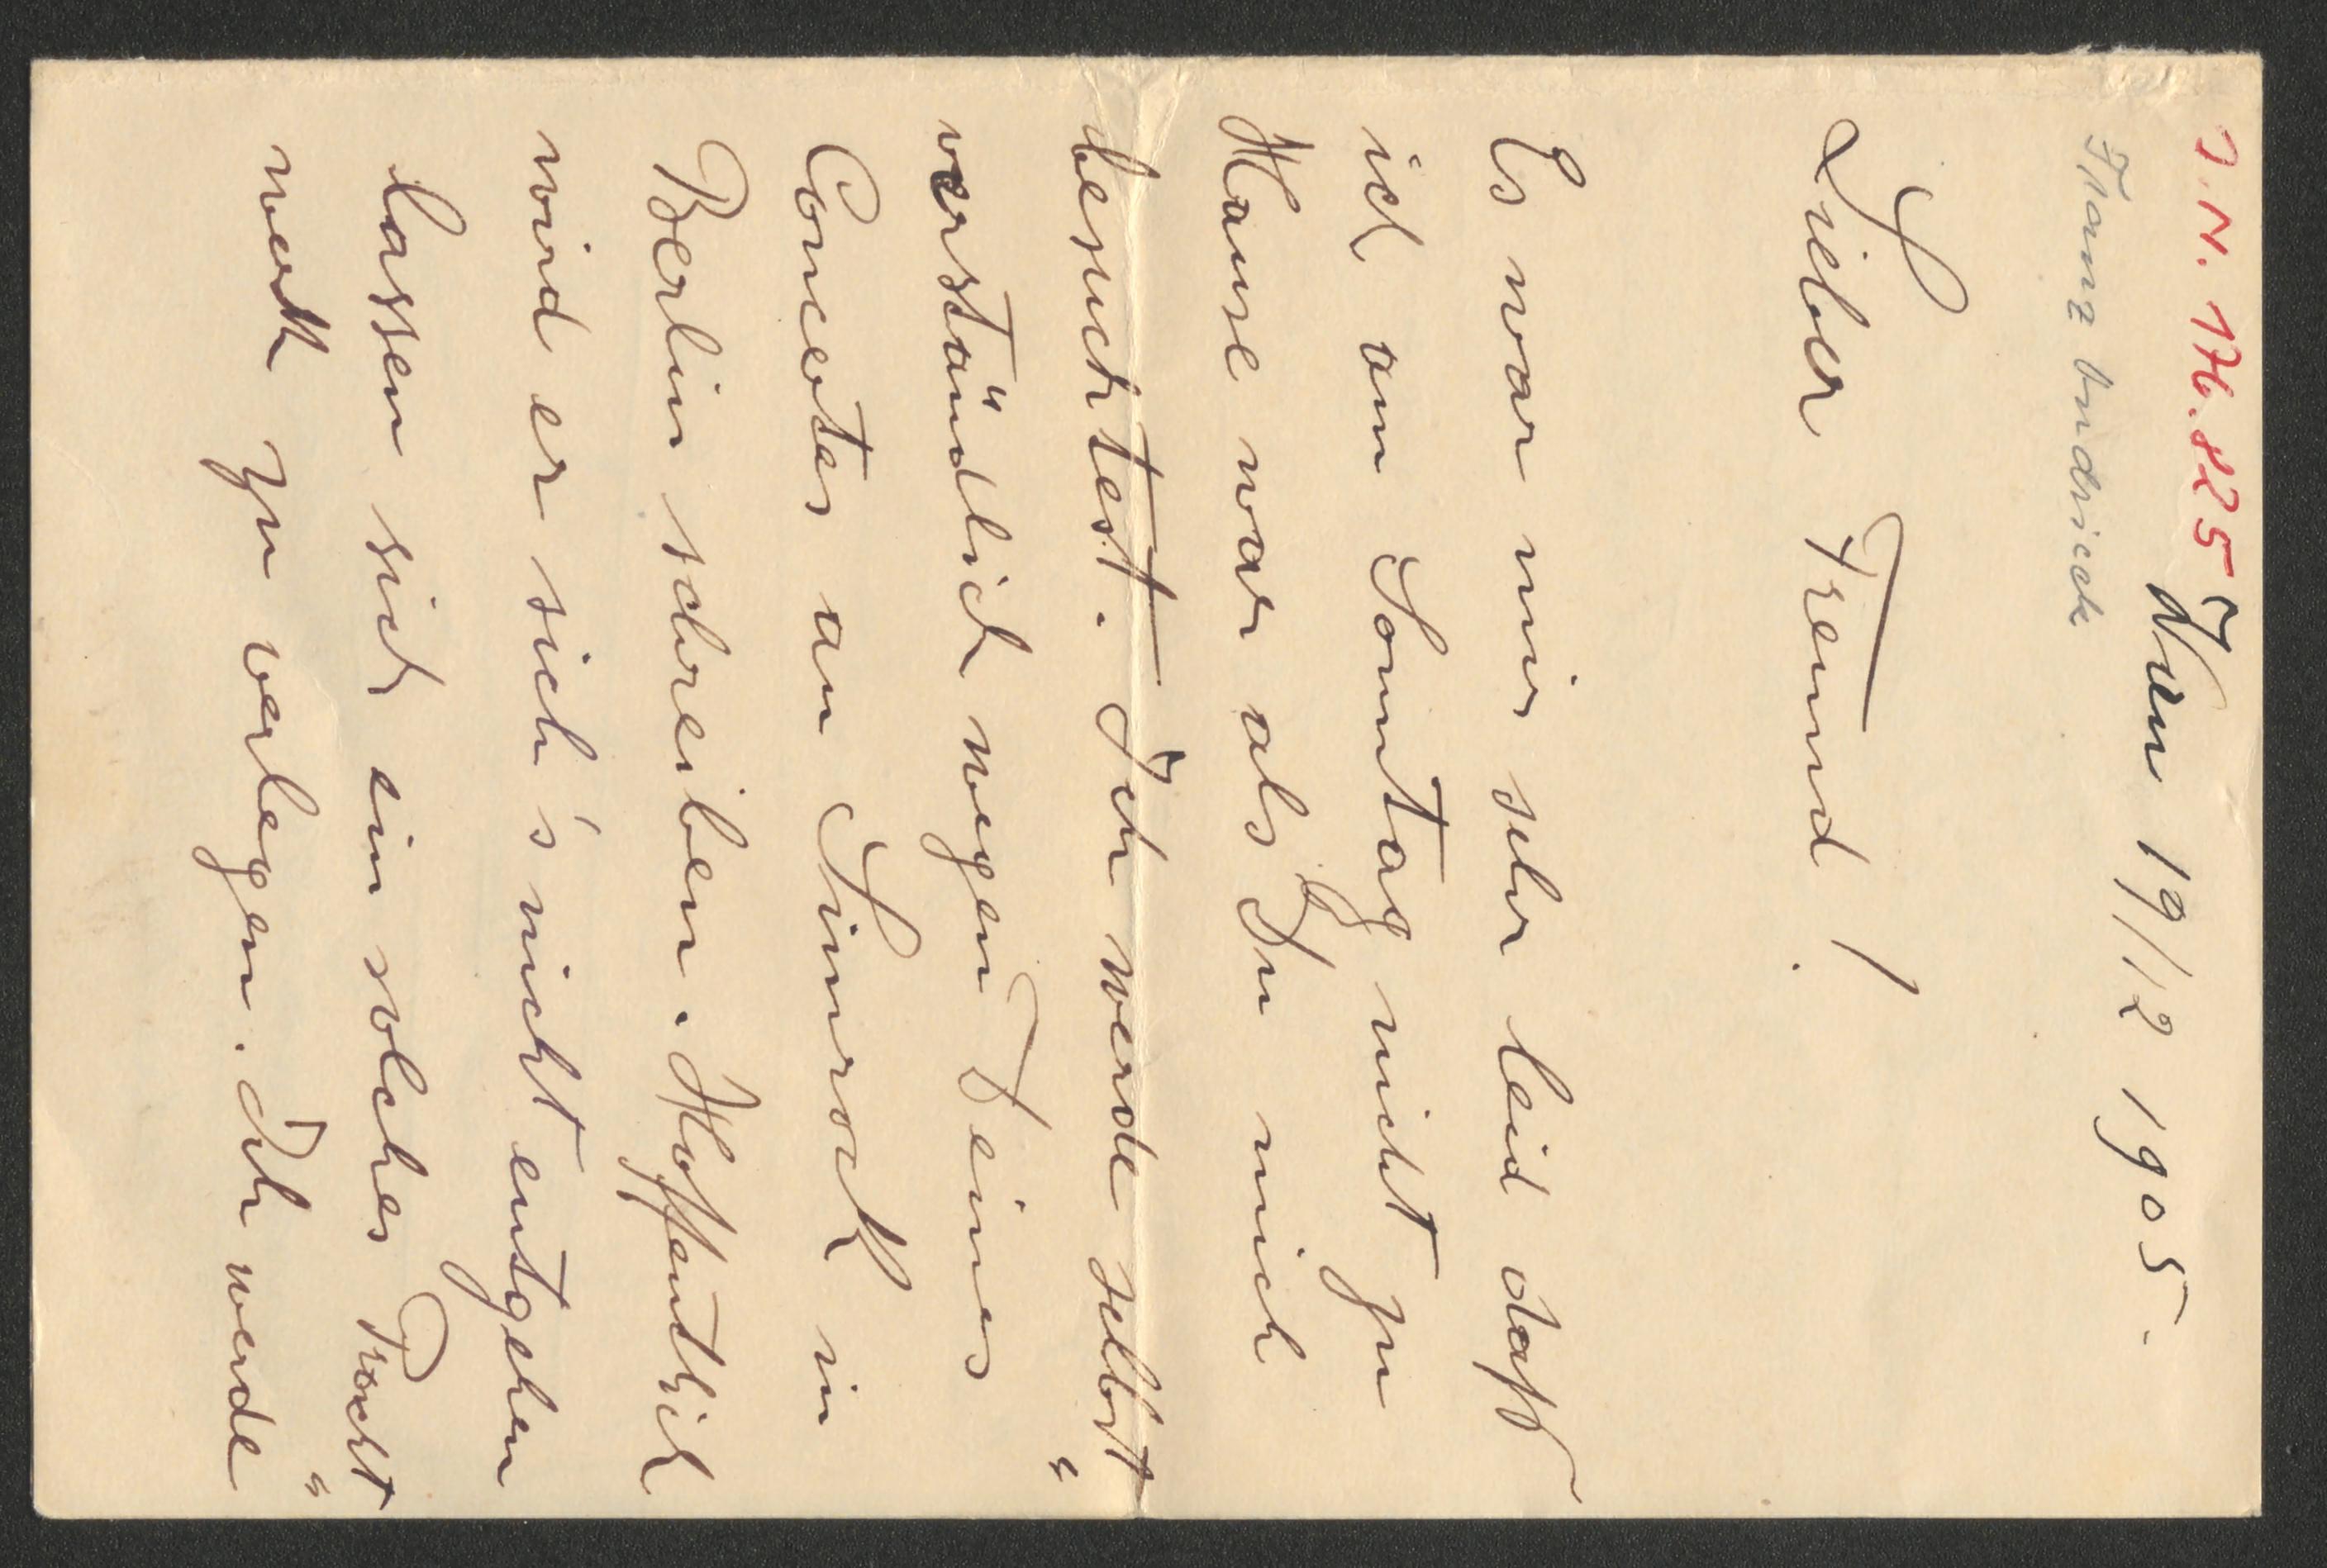 I.N. 176.825
Franz Ondricek
Wien 19/12 1905.
Lieber Freund!
Es war mir sehr leid dass
ich am Sonntag nicht zu
Hause war als Du mich
besuchtest. Ich werde selbst"
verständlich wegen Deines
Concertes an Simrock in
Berlin schreiben. Hoffentlich
wird er sich's nicht entgehen
lassen sich ein solches Pracht"
werk zu verlegen. Ich werde